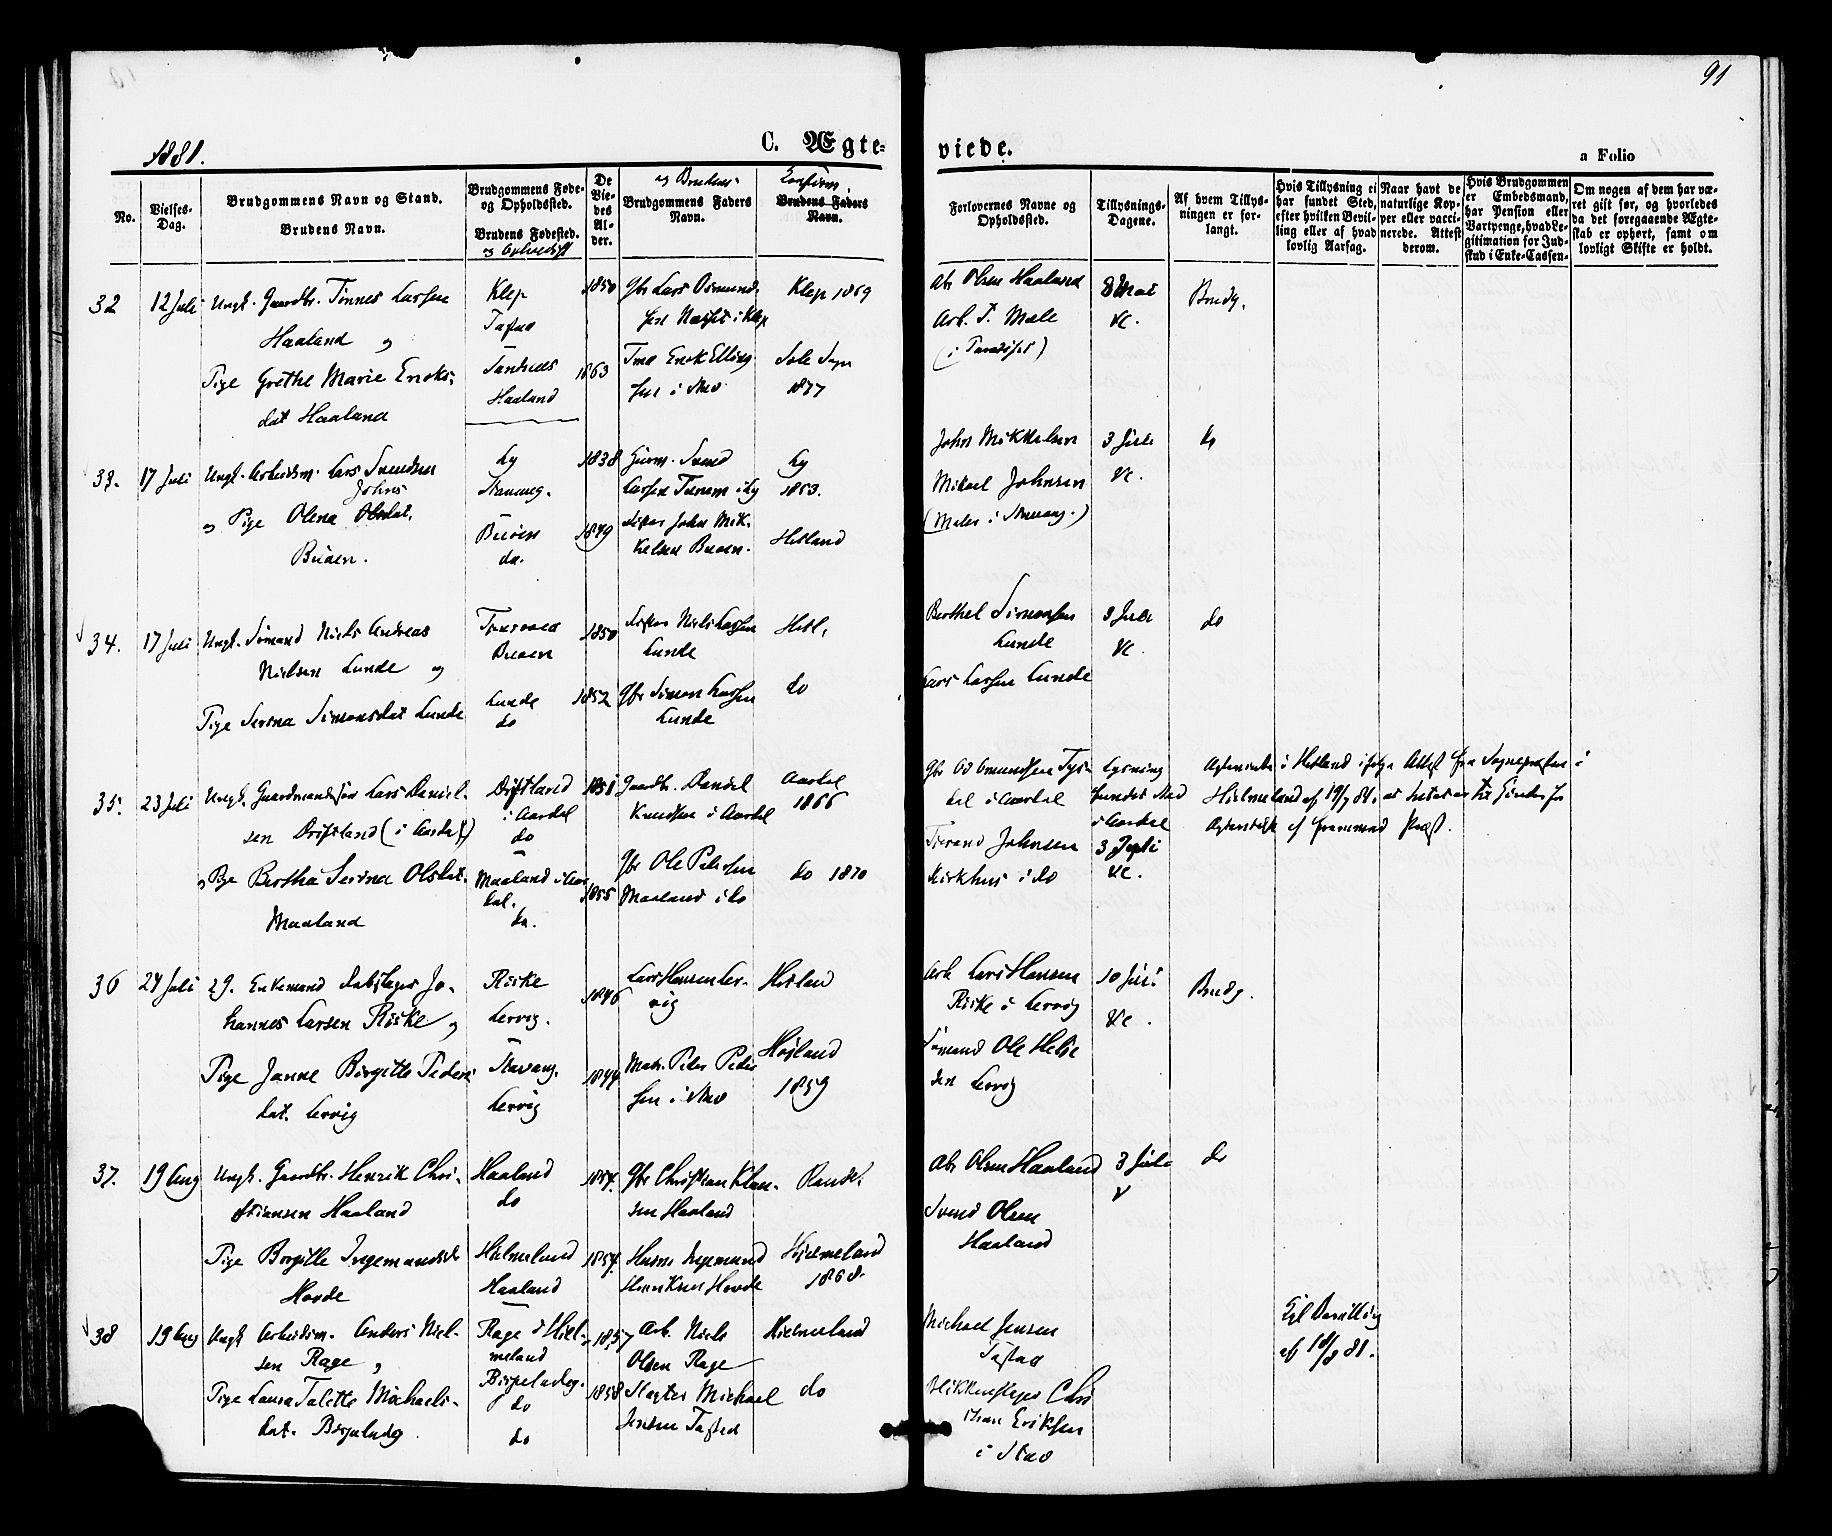 91
1881.
C. Ægte-
viede.
a Folio
No.
Vielses-
Dag.
Brudgommens Navn og Stand.
Brudens Navn.
Brudgommens Føde-
og Opholdssted.
Brudens Fødested.
og Opholdsst
De
Vie-
des
Al-
der.
og Brudens
Brudgommens Faders
Navn.
Confirm.
Brudens Faders
Navn.
Forlovernes Navne og
Opholdssted.
Tillysnings-
Dagene.
Af hvem Tillys-
ningen er for-
langt.
Hvis Tillysning ei
har fundet Sted,
efter hvilken Bevil-
ling eller af hvad
lovlig Aarsag.
Naar havt de
naturlige Kop-
per eller vacci-
nerede. Attest
derom.
Hvis Brudgommen
er Embedsmand,
har Pension eller
Vartpenge, hvad Le-
gitimation for Ind-
skud i Enke-Cassen-
Om nogen af dem har væ-
ret gift før, og hvorledes
da det foregaaende Ægte-
skab er ophørt, samt om
lovligt Skifte er holdt.
32
12 Juli
Ungk. Gaardbr. Tønnes Larsen
Haaland og
Pige Grethe Marie Eriks-
dat Haaland
Klep
Sandnes
Haaland
1850
1863
Gbr Lars Osmund-
sen i Klep
Erik Elling-
sen i Stav
Klep 1869
1877
Abr Olsen Haaland
Arb. T. Male
(i Paradiset)
8 Mai
Vc.
Brudg.
33.
17 Juli
Ungk. Arbeidsm. Lars Svendsen
Johns
og Pige Olena Olsdat.
Buøen.
Ly
Stavang.
Buøen
do.
1838
1849
Svend
Larsen Tunem i Ly
John Mik-
kelsen Buøen.
Ly
1853.
Hetland
John Mikkelsen
Mikael Johnsen
(Maler i Stavang.)
3 Juli
Vc.
34.
17 Juli
Ungk. Sømand Niels Andreas
Nielsen Lunde og
Pige Serina Simonsdat Lunde
Buøen
Lunde
do
1850
1852
Niels Larsen
Lunde
Gbr Simon Larsen
Lunde
Hetl.
do
Berthel Simonsen
Lunde
Lars Larsen Lunde
3 Juli
Vc.
do
35.
23 Juli
Ungk. Gaardmandssøn Lars Daniel-
sen Riftland (i Aardal)
og Pige Bertha Serina Olsdat.
Maaland
i Aardal
do
Maaland i Aar-
dal.
do.
1851
1855
Gaardbr. Daniel
Knudsen i Aardal
Gbr Ole Petersen
Maaland i do
Aardal
1866
do 1870
i Aardal
Johnsen
Kirkhus i do
Lysning
i Aardal
3 Juli
Vc.
i Hetland ifølge Attest fra Sognepræsten i
Hjelmeland af 19/7 81, at Intet er til Hinder for
af fremmed Præst.
36
24 Juli
29. Enkemand Johannes Larsen Riske og
Pige Janne Birgitte Peders-
dat. Lervig
Riske
Lervig.
Stavang.
Lervig
1846
1844
Lars Hansen Ler-
vig
Peder Peder-
sen i Stav
Hetland
Hetland
1859
Arb Lars Hansen
Riske i Lervig
Sømand Ole Helje
sen Lervig
10 Juli
Vc.
Brudg.
37.
19 Aug
Ungk. Gaardbr. Henrik Chri-
stiansen Haaland
Pige Birgitte Ingemundsd
Hovde
Haaland
do
Hielmeland
Haaland
1854.
1854.
Gbr Christian Klau-
sen Haaland
Husm Ingemund
Henriksen Hovde
Rand.
Hjelmeland
1868.
Abr Olsen Haaland
Svend Olsen
Haaland
3 Juli
V
do
38
19 Aug
Ungk Arbeidsm. Anders Niel-
sen Rage og
Pige Laura Talette Michaels-
dat.
Rage i Hiel-
meland
do
do
1857
1858
Arb. Niels
Olsen Rage
Slagter Michael
Jensen Tasted
Hielmeland
do
Michael Jensen
Tastad
Blikkenslager Chri
stian Eriksen
i Stav
Kgl Bevilling
af 18/8 81.